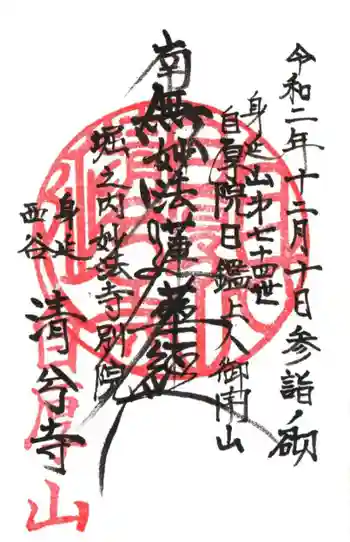 令和二年十二月十日参詣ノ砌
身延山第七十四世
自厚院日鑑上人御開山
南無妙法蓮華経
堀之内妙法寺別院
身延
西谷
清兮寺
山